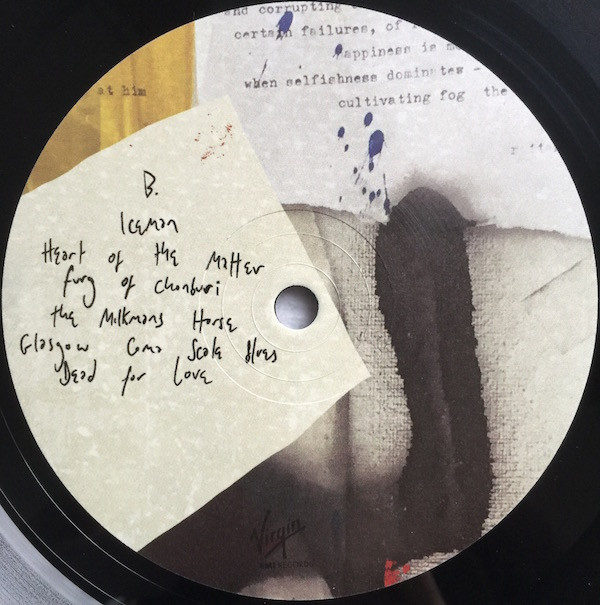 and corrupting
certain failures, of
happiness is
when selfishness dominates -
cultivating fog the
at him
B.
Iceman
Heart of the Matter
fury of chonburi
the Milkmans Horse
Glasgow Coma Scale Blues
Dead for Love
Virgin